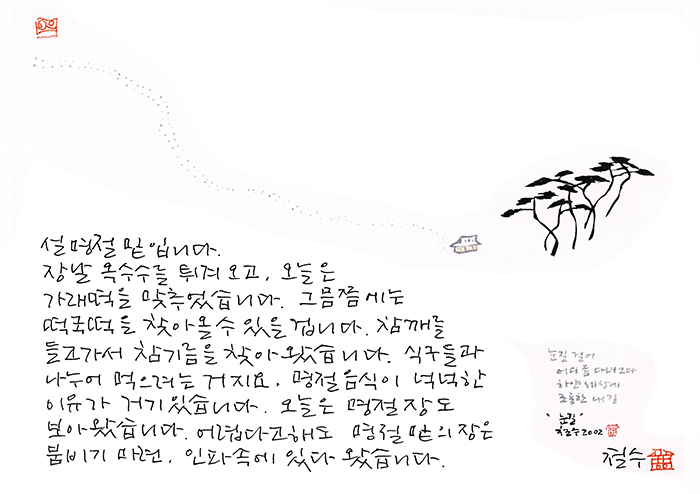 설 명절 밑입니다.
장날 옥수수를 튀겨 오고, 오늘은
가래떡을 맞추었습니다. 그믐쯤에는
떡국떡을 찾아올 수 있을 겁니다. 참깨를
들고가서 참기름을 찾아 왔습니다. 식구들과
나누어 먹으려는 거지요. 명절음식이 넉넉한
이유가 거기있습니다. 오늘은 명절 장도
보아왔습니다. 어렵다고해도 명절 밑의 장은
붐비기 마련. 인파속에 있다 왔습니다.
눈길 걸어
어디쯤 다녀오다
하얀세상에
조용한 내 길
'눈길'
철수 2002
철수